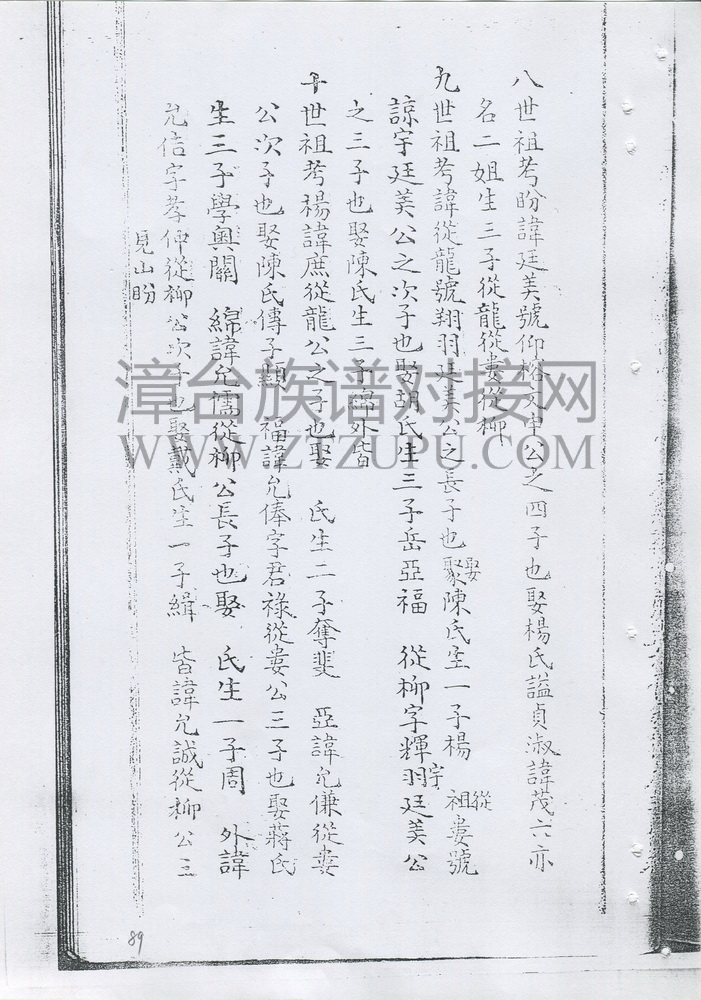 八世祖考盼諱廷美號仰裕文中公之四子也娶楊氏謚貞淑諱茂六亦
名二姐生三子從龍從婁從柳
九世祖考諱從龍號翔羽廷美公之長子也娶陳氏生一子楊 祖從婁號
諒宇廷美公之次子也娶胡氏生三子岳亞福 從柳字輝羽廷美公
之三子也娶陳氏生三子綿外皆
十世祖考楊諱庶從龍公之子也娶 氏生二子奪斐 亞諱允傔從婁
公次子也娶陳氏傳子顯 福諱允俸字君祿從婁公三子也娶蔣氏
生三子學與關 綿諱允儒從柳公長子也娶 氏生一子周 外諱
允信字孝仲從柳公次子也娶戴氏生一子緝 皆諱允誠從柳公三
見山盼
89
漳台族谱对接网
WWW.ZTZUPU.COM